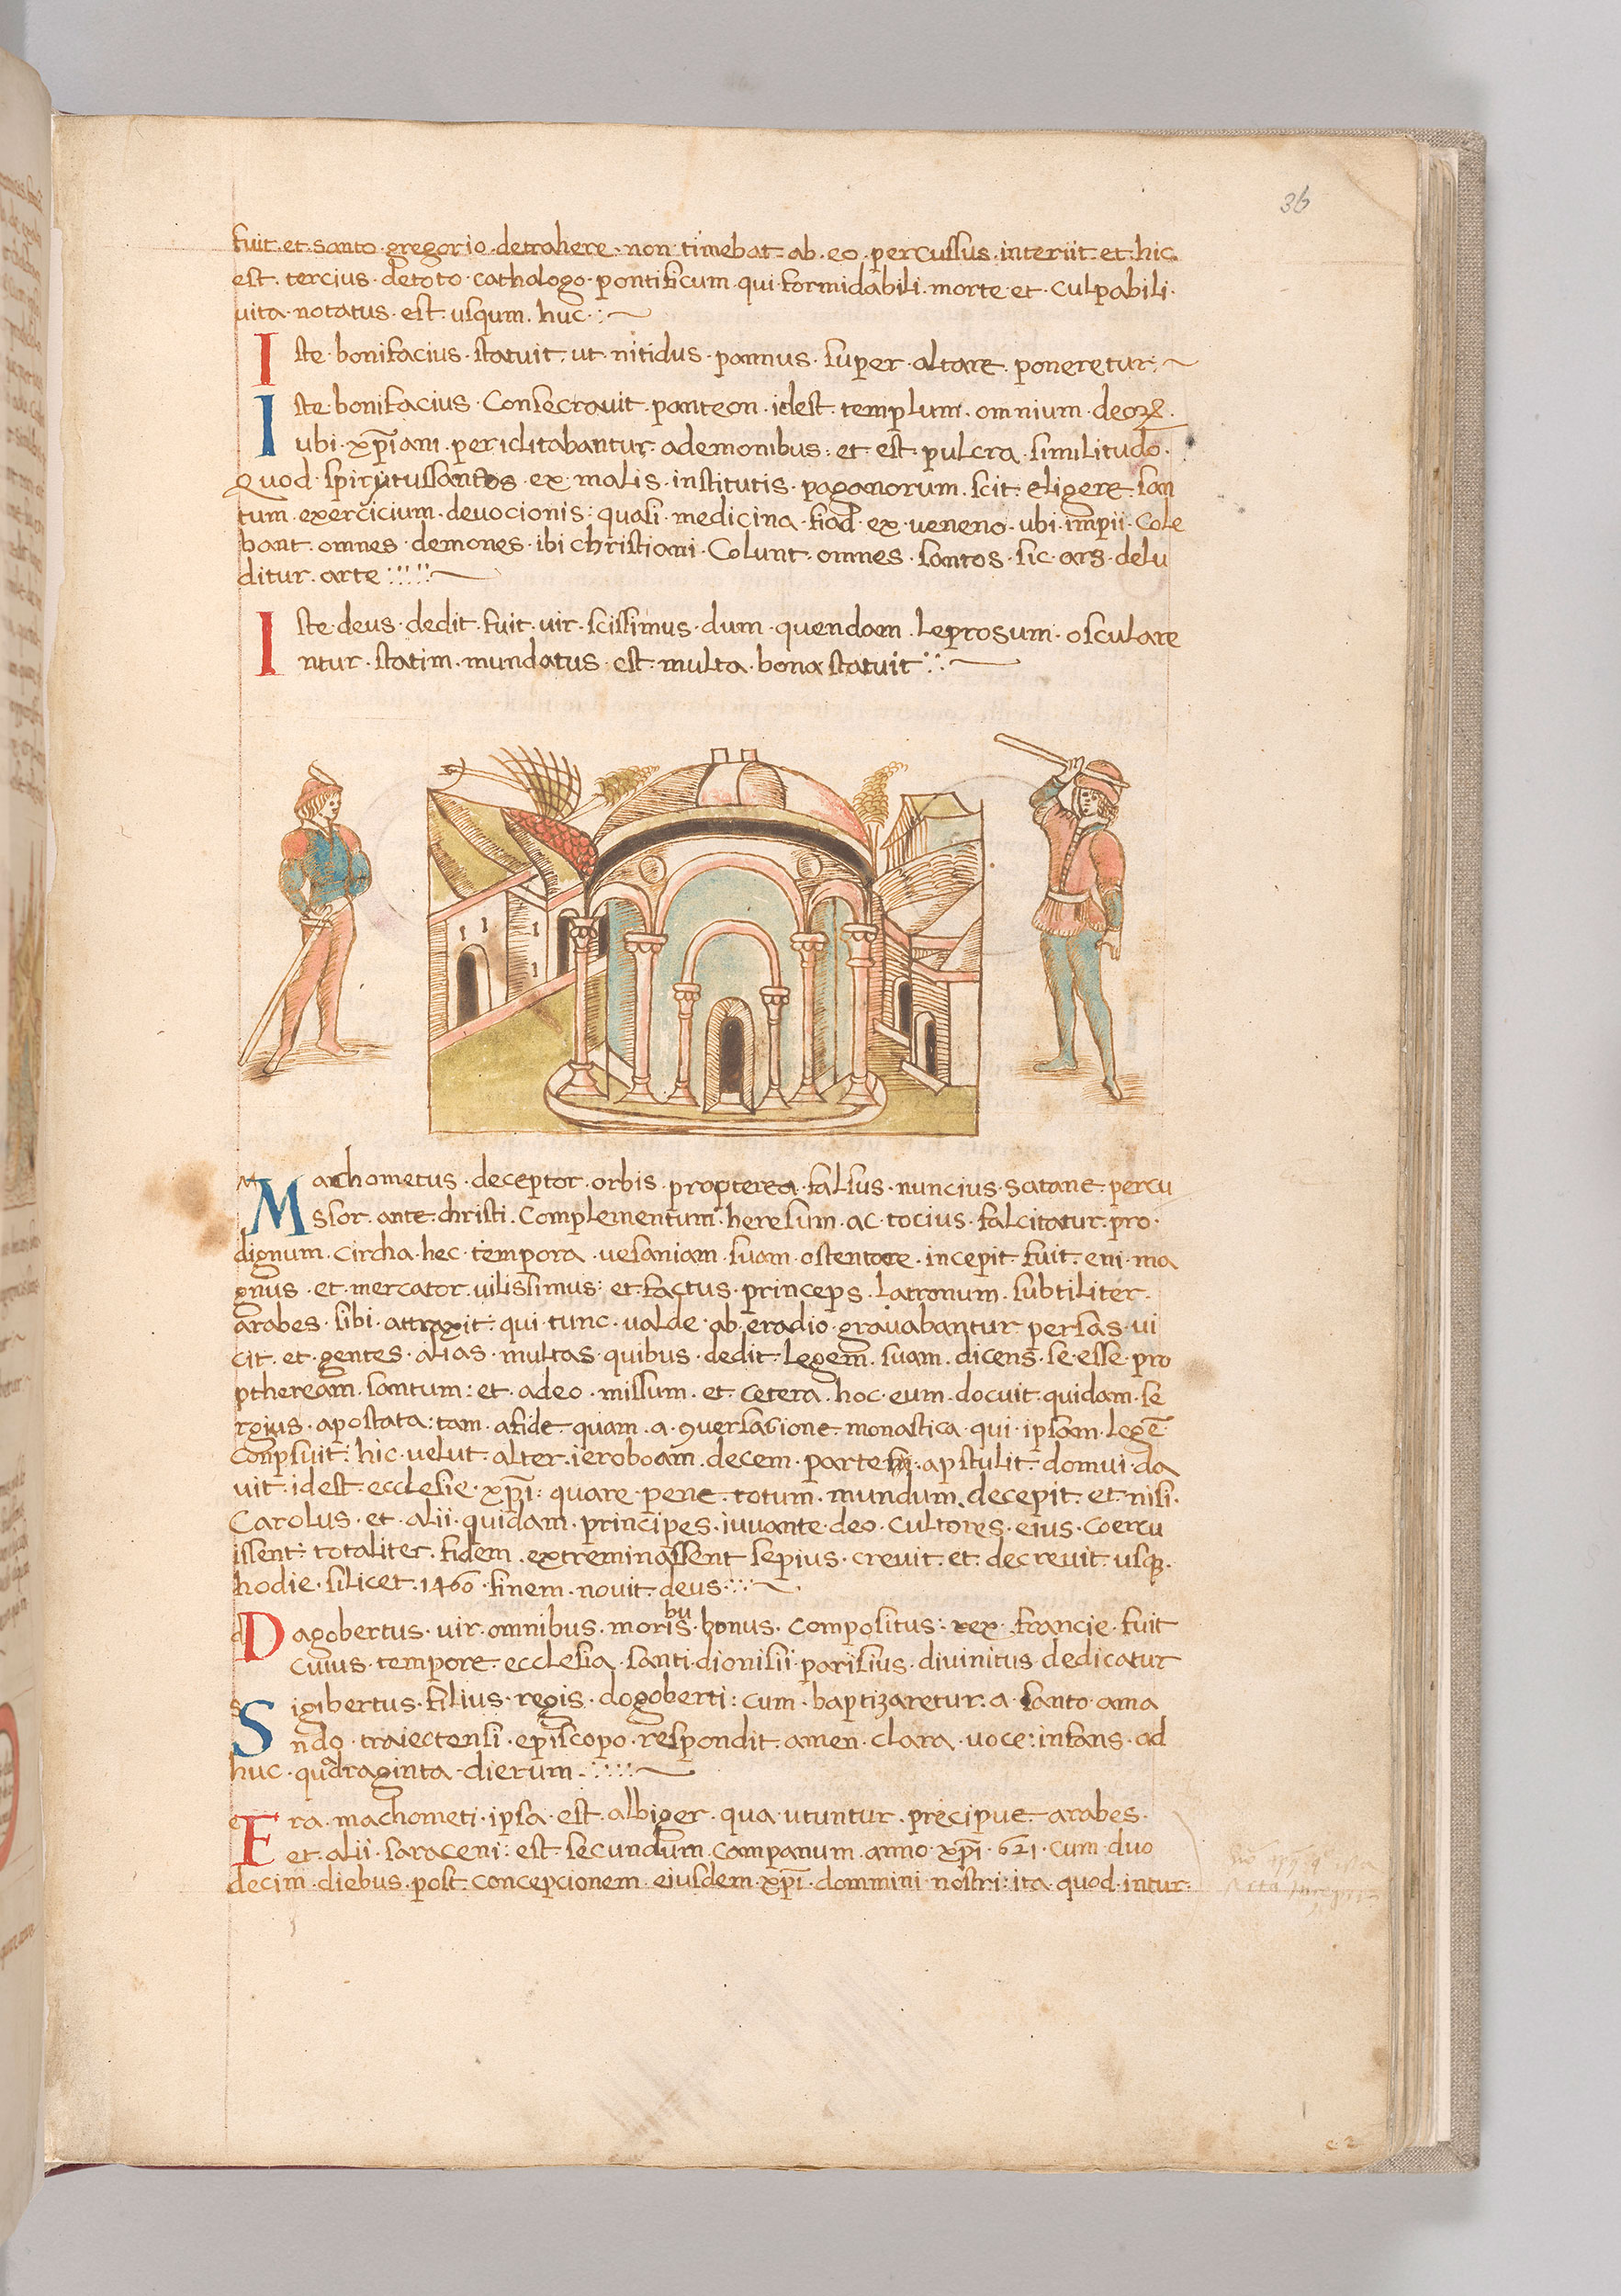 36
fuit et santo gregorio detrahere non timebat ab eo percussus interiit et hic
est tercius detoto cathalogo pontificum qui formidabili morte et culpabili
vita notatus est usqum huc
Iste bonifacius statuit ut nitidus pannus super altare poneretur
Iste bonifacius Consecravit panteon idest templum omnium deoꝝ
ubi xp̄iani periclitabantur ademonibus et est pulcra similitudo
Quod spiritussantos ex malis institutis paganorum scit eligere san
tum exercicium devocionis quasi medicina fiad ex veneno ubi impii Cole
bant omnes demones ibi christiani Colunt omnes santos sic ars delu
ditur arte
Iste deus dedit fuit vir scissimus dum quendam leprosum osculare
ntur statim mundatus est multa bona statuit
Machometus deceptor orbis propterea falsus nuncius satane percu
ssor ante christi Complementum heresum ac tocius falcitatur pro
dignum circha hec tempora vesaniam suam ostentare incepit fuit eni ma
gnus et mercator vilissimus et factus princeps latronum subtiliter
arabes sibi attraxit qui tunc valde ab eradio gravabantur persas vi
cit et gentes alias multas quibus dedit legem suam dicens se esse pro
pthream santum et adeo missum et cetera hoc eum docuit quidam se
rgius apostata tam afide quam a 9versacione monastica qui ipsam legē
Conpsuit hic velut alter ieroboam decem partem apstulit domui da
vit idest ecclesie xp̄i quare pene totum mundum decepit et nisi
Carolus et alii quidam principes iuvante deo cultores eius coercu
issent totaliter fidem extreminassent sepius crevit et decrevit usqꝫ
hodie silicet 1460 finem novit deus
Dagobertus vir omnibus moribus bonus compositus rex francie fuit
cuius tempore ecclesia santi dionisii parisius divinitus dedicatur
Sigibertus filius regis dogoberti cum baptizaretur a santo ama
ndo traiectensi episcopo respondit amen clara voce infans ad
huc quadraginta dierum
Era machometi ipsa est albiger qua utuntur precipue arabes
et alii saraceni est secundum campanum anno xp̄i 621 cum duo
decim diebus post concepcionem eiusdem xp̄i dommini nostri ita quod intur
e 2